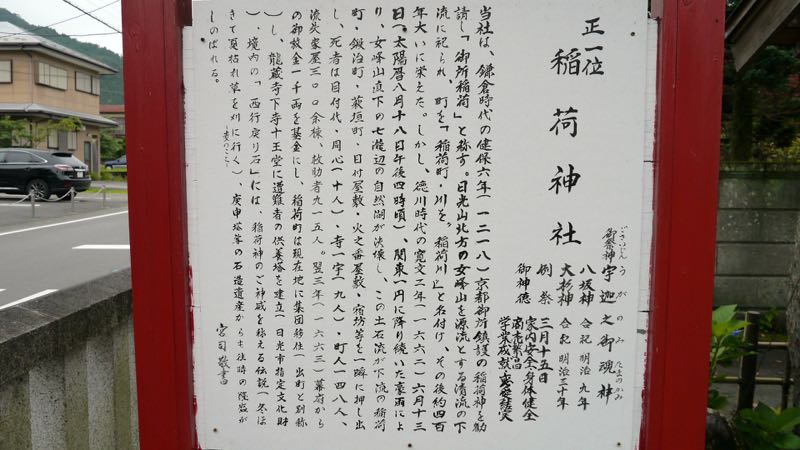 正一位
稲荷神社
御祭神 宇迦之御魂神
ごさいじん うがのみたまのかみ
八坂神 合祀 明治九年
大杉神 合祀 明治三十年
例祭 三月十五日
御神徳 家内安全・身体健全
商売繁昌
学業成就
当社は、鎌倉時代の健保六年(一二一八)京都御所鎮護の稲荷神を勧
請し「御所稲荷」と称す。日光山北方の女峰山を源流とする清流の下
流に祀られ、町を「稲荷町・川を。稲荷川」と名付け、その後約四百
年大いに栄えた。しかし、徳川時代の寛文二年(一六六二)六月十三
日(太陽暦八月十八日午後四時頃)、関東一円に降り続いた豪雨によ
り、女峰山直下の七滝辺の自然湖が決壊し、この土石流が下流の稲荷
町・鍛冶町・萩垣町・目付屋敷・火之番屋敷・宿坊等を一瞬に押し出
し、死者は目付代・同心(十人)・寺一宇(九人)・町人一四八人、
流失家屋三〇〇余棟、救助者九一五人。翌三年(一六六三)幕府から
の御救金一千両を基金にし、稲荷町は現在地に集団移住(出町と別称
)し、龍蔵寺下寺十王堂に遭難者の供養塔を建立(日光市指定文化財
)、境内の「西行戻り石」には、稲荷神のご神威を称える伝説(冬ほ
きて夏枯れ草を刈に行く)、庚申塔等の石造遺産からも往時の隆盛が
しのばれる。
宮司敬書